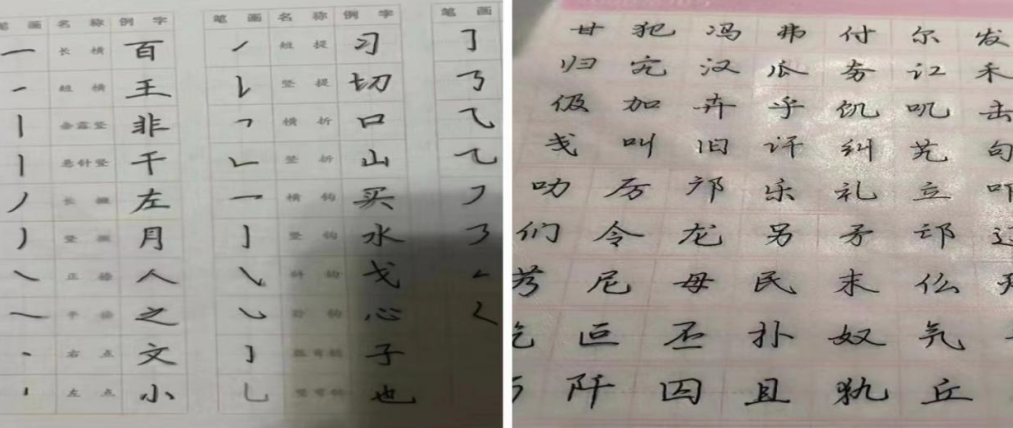 笔画 名称 例字 笔画 名称 例字 笔画
一 长横 百 短提 习
短横 王 竖提 切
垂露竖 非 横折 口
悬针竖 千 竖折 山
长撇 左 横钩 买
竖撇 月 竖钩 水
正捺 人 斜钩 戈
平捺 之 卧钩 心
右点 文 弧弯钩 子
左点 小 竖弯钩 也
甘 犯 冯 弗 付 尔 发
归 宄 汉 瓜 夯 讧 禾
伋 加 卉 乎 饥 叽 击
戋 叫 旧 讦 纠 艽 句
叻 厉 邝 乐 礼 立 叩
们 令 龙 另 矛 邙
艿 尼 母 民 末 仫
讫 叵 丕 扑 奴 氕
阡 囚 且 犰 丘